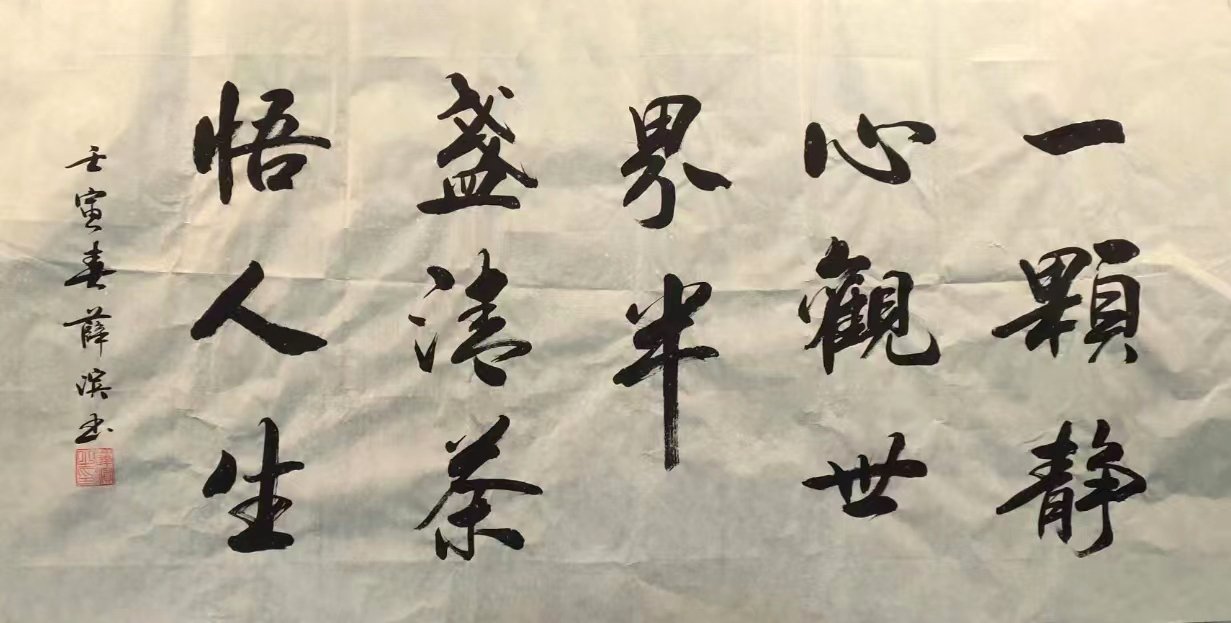 一顆静
心觀世
界半
盏清茶
悟人生
壬寅春薛滨书